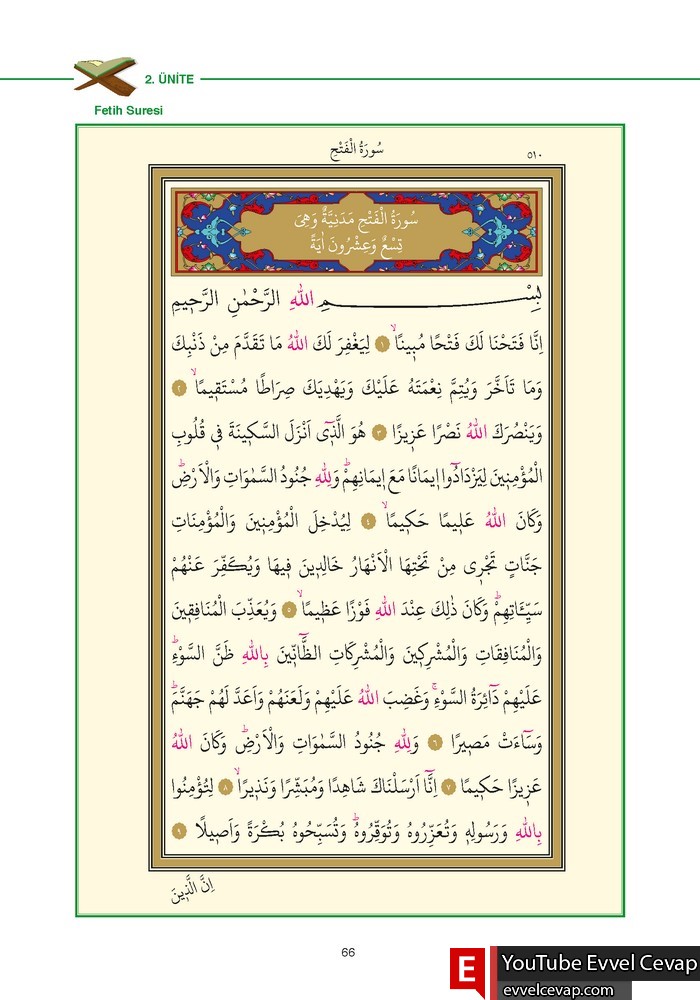 2. ÜNİTE
Fetih Suresi
سُورَةُ الْفَتْحِ
٥١٠
سُورَةُ الْفَتْحِ مَدَنِيَّةٌ وَهِىَ
تِسْعٌ وَعِشْرُونَ اٰيَةً
بِسْمِ اللّٰهِ الرَّحْمٰنِ الرَّح۪يمِ
اِنَّا فَتَحْنَا لَكَ فَتْحًا مُب۪ينًاۙ ﴿١﴾ لِيَغْفِرَ لَكَ اللّٰهُ مَا تَقَدَّمَ مِنْ ذَنْبِكَ
وَمَا تَاَخَّرَ وَيُتِمَّ نِعْمَتَهُ عَلَيْكَ وَيَهْدِيَكَ صِرَاطًا مُسْتَق۪يمًاۙ ﴿٢﴾
وَيَنْصُرَكَ اللّٰهُ نَصْرًا عَز۪يزًا ﴿٣﴾ هُوَ الَّذ۪ٓى اَنْزَلَ السَّك۪ينَةَ ف۪ى قُلُوبِ
الْمُؤْمِن۪ينَ لِيَزْدَادُٓوا ا۪يمَانًا مَعَ ا۪يمَانِهِمْۜ وَلِلّٰهِ جُنُودُ السَّمٰوَاتِ وَالْاَرْضِۜ
وَكَانَ اللّٰهُ عَل۪يمًا حَك۪يمًاۙ ﴿٤﴾ لِيُدْخِلَ الْمُؤْمِن۪ينَ وَالْمُؤْمِنَاتِ
جَنَّاتٍ تَجْر۪ى مِنْ تَحْتِهَا الْاَنْهَارُ خَالِد۪ينَ ف۪يهَا وَيُكَفِّرَ عَنْهُمْ
سَيِّـَٔاتِهِمْۜ وَكَانَ ذٰلِكَ عِنْدَ اللّٰهِ فَوْزًا عَظ۪يمًاۙ ﴿٥﴾ وَيُعَذِّبَ الْمُنَافِق۪ينَ
وَالْمُنَافِقَاتِ وَالْمُشْرِك۪ينَ وَالْمُشْرِكَاتِ الظَّٓانّ۪ينَ بِاللّٰهِ ظَنَّ السَّوْءِۜ
عَلَيْهِمْ دَٓائِرَةُ السَّوْءِۚ وَغَضِبَ اللّٰهُ عَلَيْهِمْ وَلَعَنَهُمْ وَاَعَدَّ لَهُمْ جَهَنَّمَۜ
وَسَٓاءَتْ مَص۪يرًا ﴿٦﴾ وَلِلّٰهِ جُنُودُ السَّمٰوَاتِ وَالْاَرْضِۜ وَكَانَ اللّٰهُ
عَز۪يزًا حَك۪يمًا ﴿٧﴾ اِنَّٓا اَرْسَلْنَاكَ شَاهِدًا وَمُبَشِّرًا وَنَذ۪يرًاۙ ﴿٨﴾ لِتُؤْمِنُوا
بِاللّٰهِ وَرَسُولِه۪ وَتُعَزِّرُوهُ وَتُوَقِّرُوهُۜ وَتُسَبِّحُوهُ بُكْرَةً وَاَص۪يلًا ﴿٩﴾
اِنَّ الَّذ۪ينَ
66
E
YouTube Evvel Cevap
evvelcevap.com